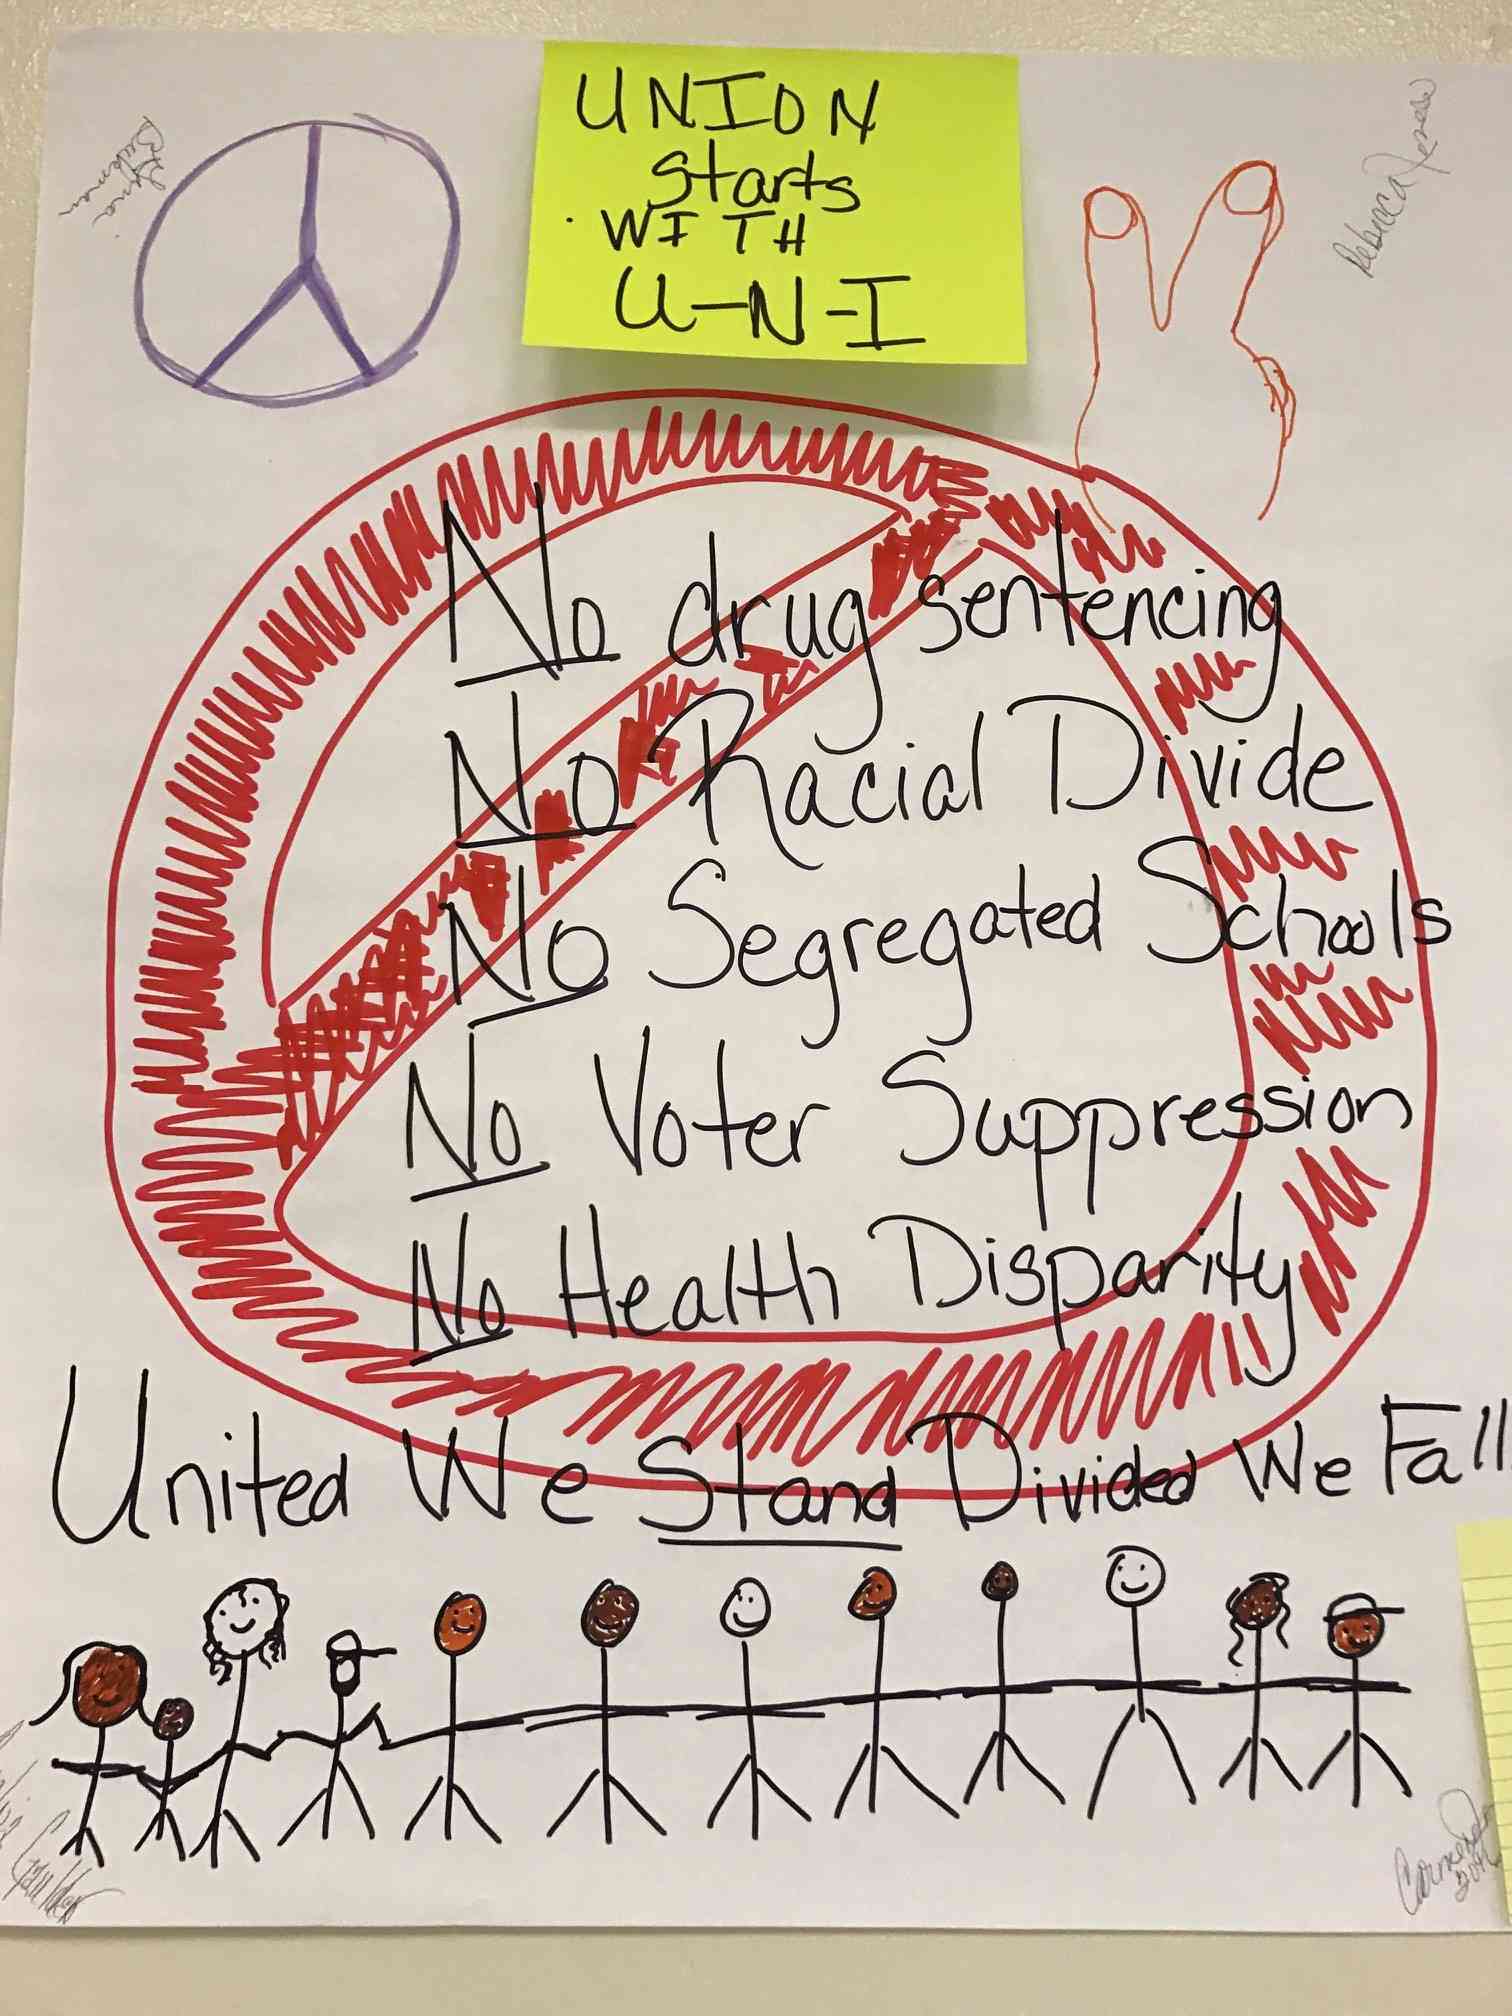 UNION
starts
WITH
U-N-I
No drug sentencing
No Racial Divide
No Segregated Schools
No Voter Suppression
No Health Disparity
United We Stand Divided We Fall
Rebecca